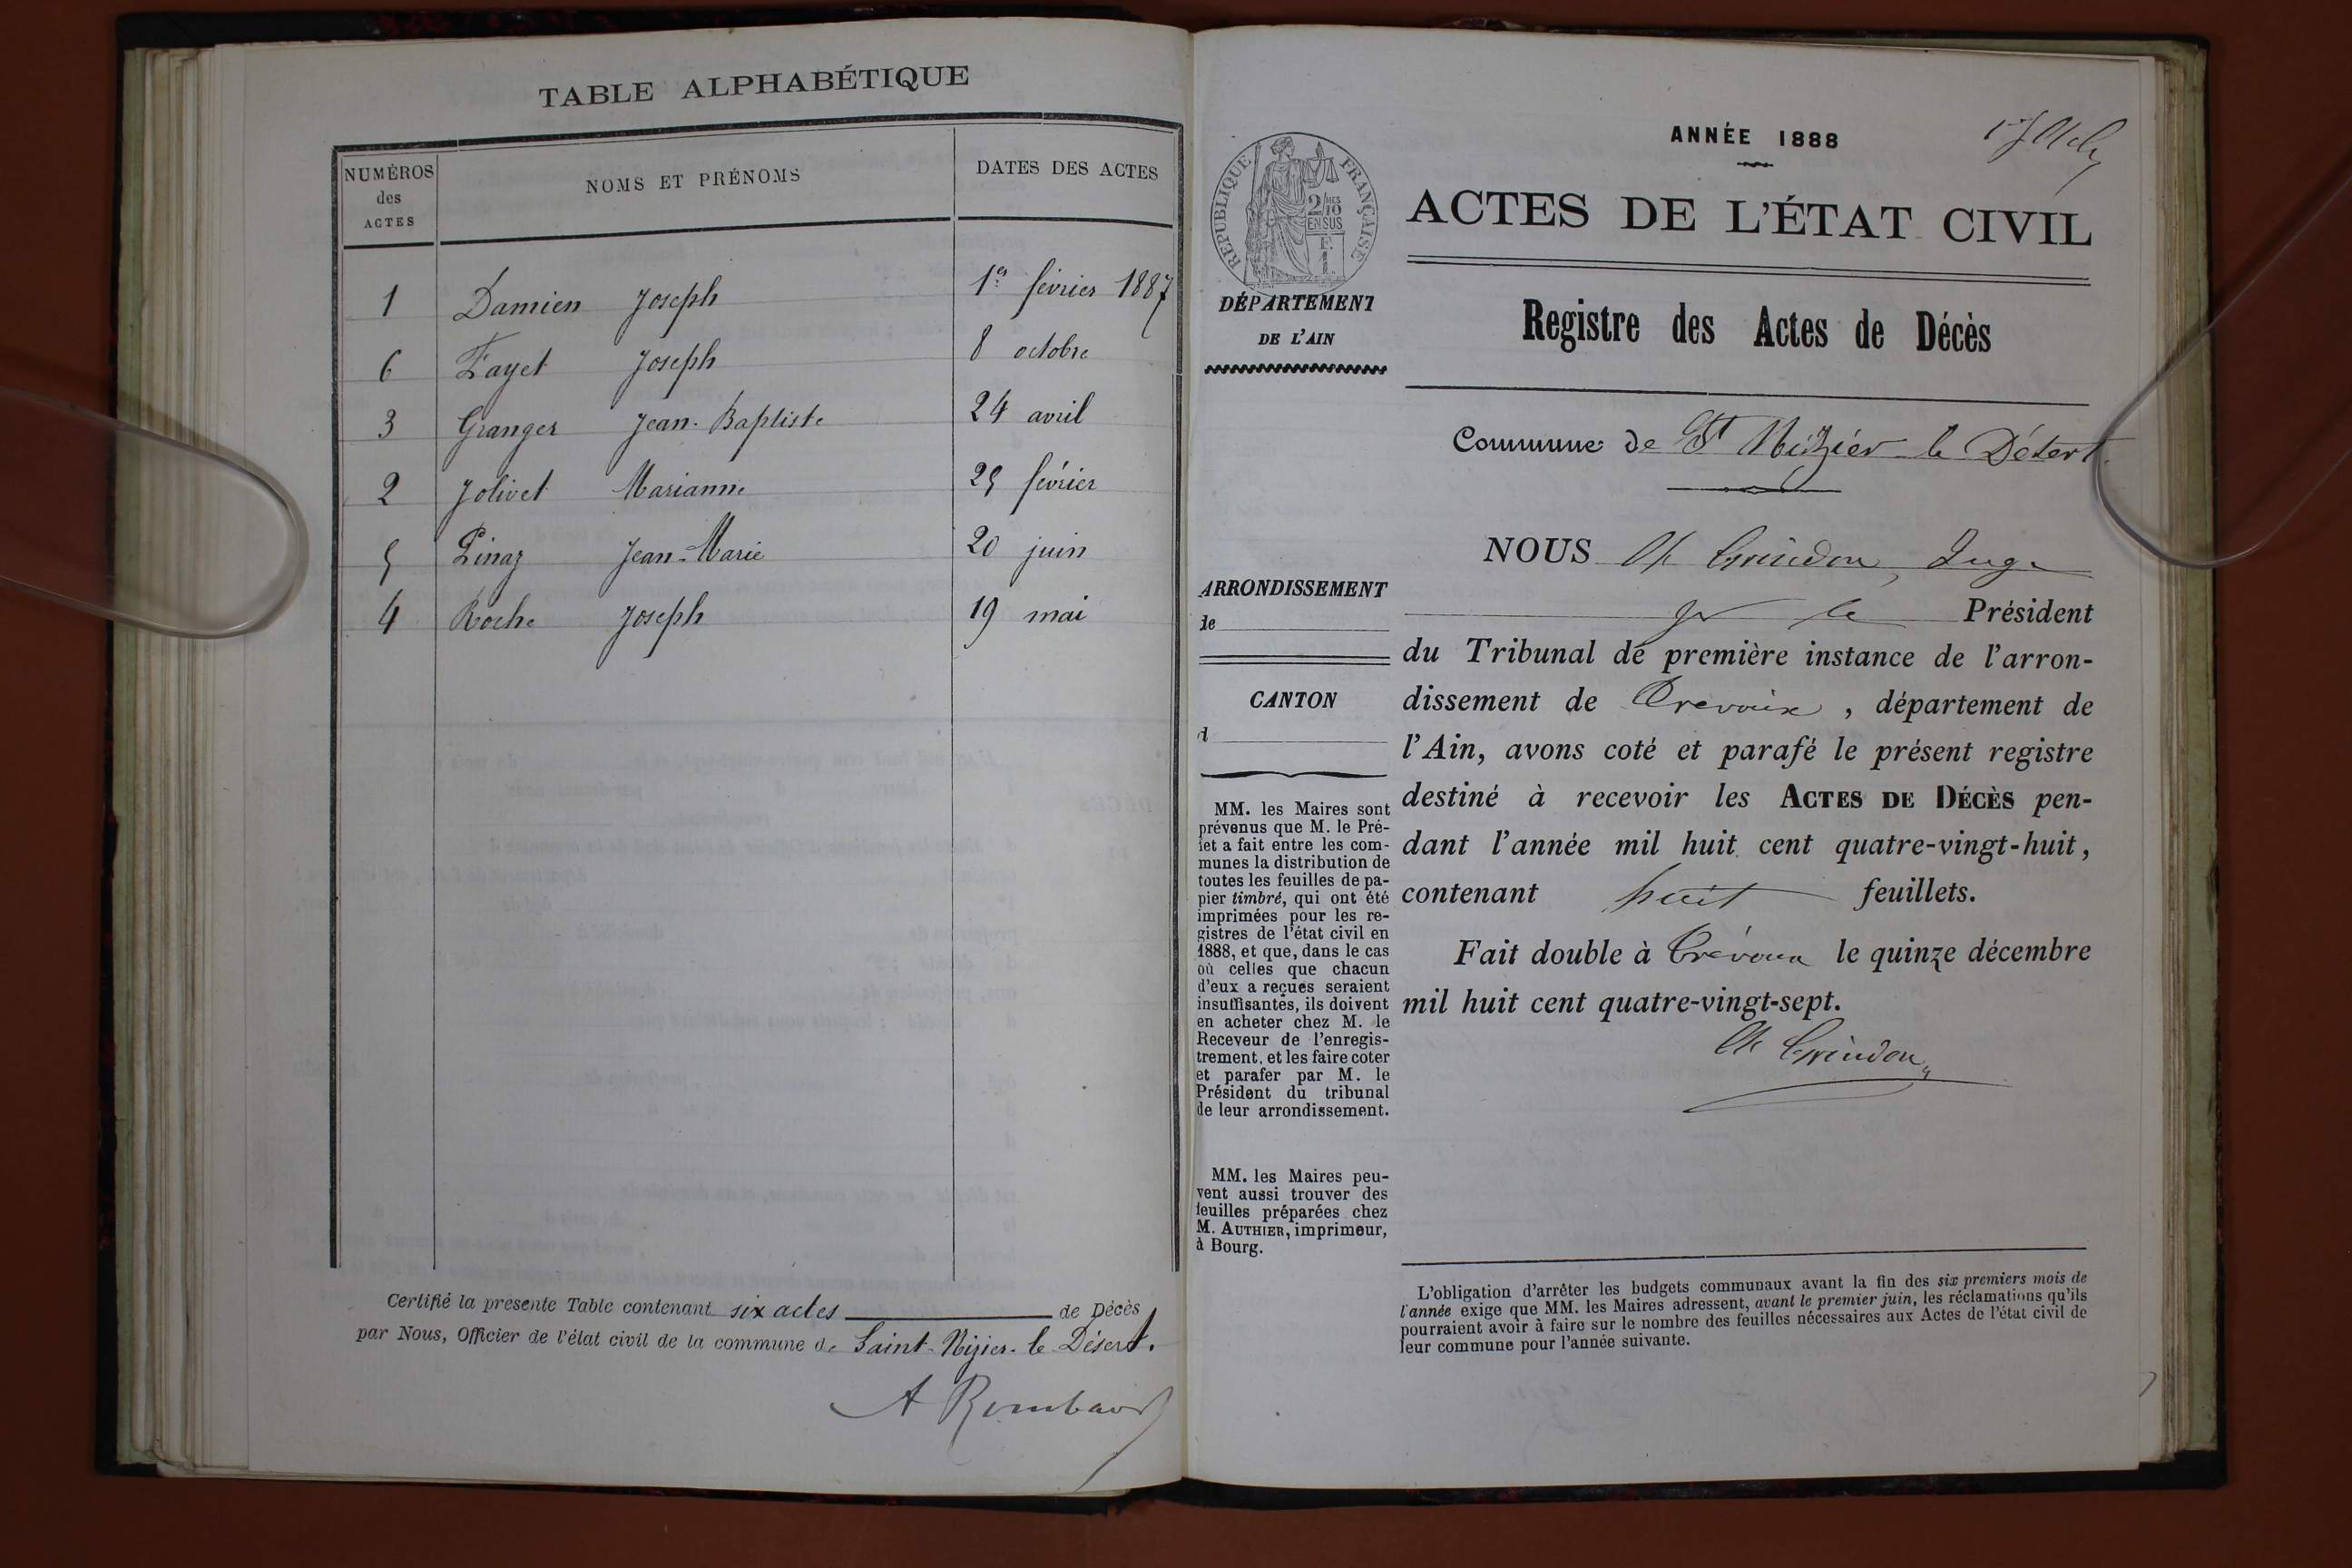 TABLE ALPHABÉTIQUE
NUMÉROS des ACTES | NOMS ET PRÉNOMS | DATES DES ACTES
1 Damien Joseph 1er février 1887
6 Fayet Joseph 8 octobre
3 Granger Jean-Baptiste 24 avril
2 Jolivet Marianne 25 février
5 Pinaz Jean-Marie 20 juin
4 Roche Joseph 19 mai
Certifié la présente Table contenant six actes de Décès
par Nous, Officier de l'état civil de la commune de Saint-Nizier-le-Désert.
A Rombaud
ANNÉE 1888
RÉPUBLIQUE FRANÇAISE
2/10 EN SUS
F. 1.
ACTES DE L'ÉTAT CIVIL
DÉPARTEMENT
DE L'AIN
Registre des Actes de Décès
Commune de St Nizier le Désert
ARRONDISSEMENT
de
CANTON
d
MM. les Maires sont
prévenus que M. le Pré-
fet a fait entre les com-
munes la distribution de
toutes les feuilles de pa-
pier timbré, qui ont été
imprimées pour les re-
gistres de l'état civil en
1888, et que, dans le cas
où celles que chacun
d'eux a reçues seraient
insuffisantes, ils doivent
en acheter chez M. le
Receveur de l'enregis-
trement, et les faire coter
et parafer par M. le
Président du tribunal
de leur arrondissement.
MM. les Maires peu-
vent aussi trouver des
feuilles préparées chez
M. AUTHIER, imprimeur,
à Bourg.
NOUS Ch Grindon, Juge
pr le Président
du Tribunal de première instance de l'arron-
dissement de Trevoux, département de
l'Ain, avons coté et parafé le présent registre
destiné à recevoir les ACTES DE DÉCÈS pen-
dant l'année mil huit cent quatre-vingt-huit,
contenant huit feuillets.
Fait double à Trévoux le quinze décembre
mil huit cent quatre-vingt-sept.
Ch Grindon
L'obligation d'arrêter les budgets communaux avant la fin des six premiers mois de
l'année exige que MM. les Maires adressent, avant le premier juin, les réclamations qu'ils
pourraient avoir à faire sur le nombre des feuilles nécessaires aux Actes de l'état civil de
leur commune pour l'année suivante.